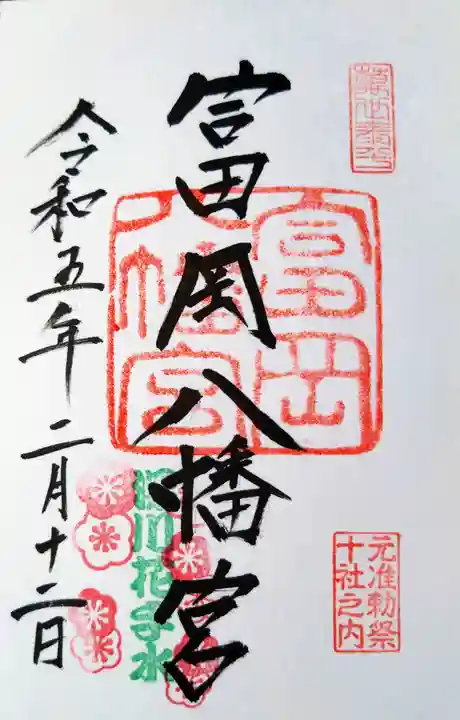 元准勅祭
十社之内
富岡八幡宮
富岡
八幡宮
深川花手水
令和五年二月十二日